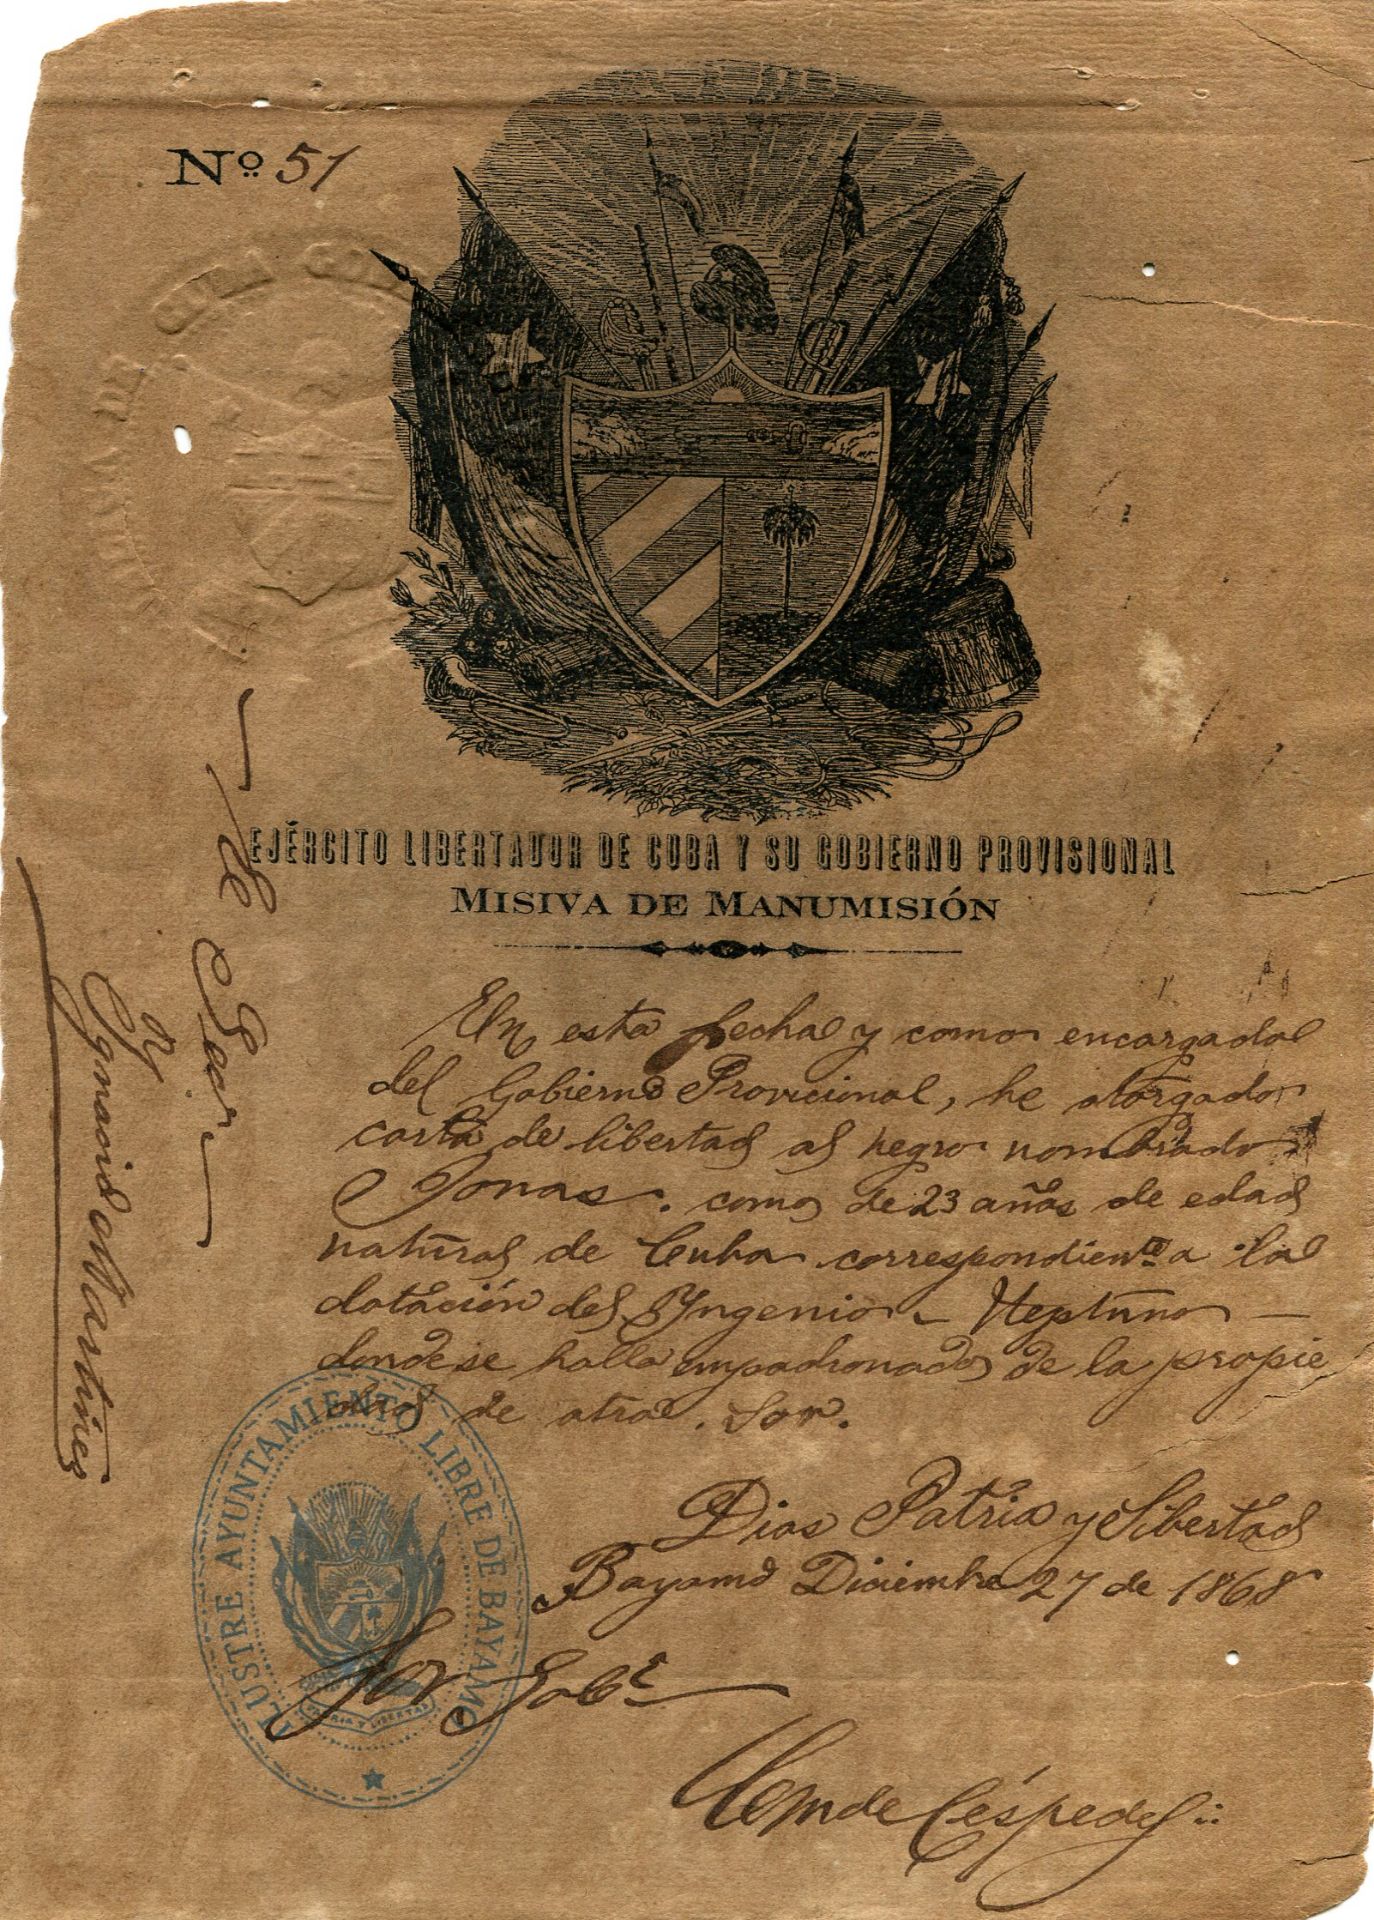 Nº 51
EJÉRCITO LIBERTADOR DE CUBA Y SU GOBIERNO PROVISIONAL
MISIVA DE MANUMISIÓN
En esta fecha y como encargado
del Gobierno Provicional, he otorgado
carta de libertad al negro nombrado
Jonas. como de 23 años de edad
natural de Cuba correspondiente a la
dotación del Yngenio - Neptuno -
donde se halla empadronado de la propie
dad de otro. Sor.
Dios Patria y Libertad
Bayamo Diciembre 27 de 1868
Sor Gobr
C M de Céspedes
Ygnacio Martines
ILUSTRE AYUNTAMIENTO LIBRE DE BAYAMO
PATRIA Y LIBERTAD
DE CUBA